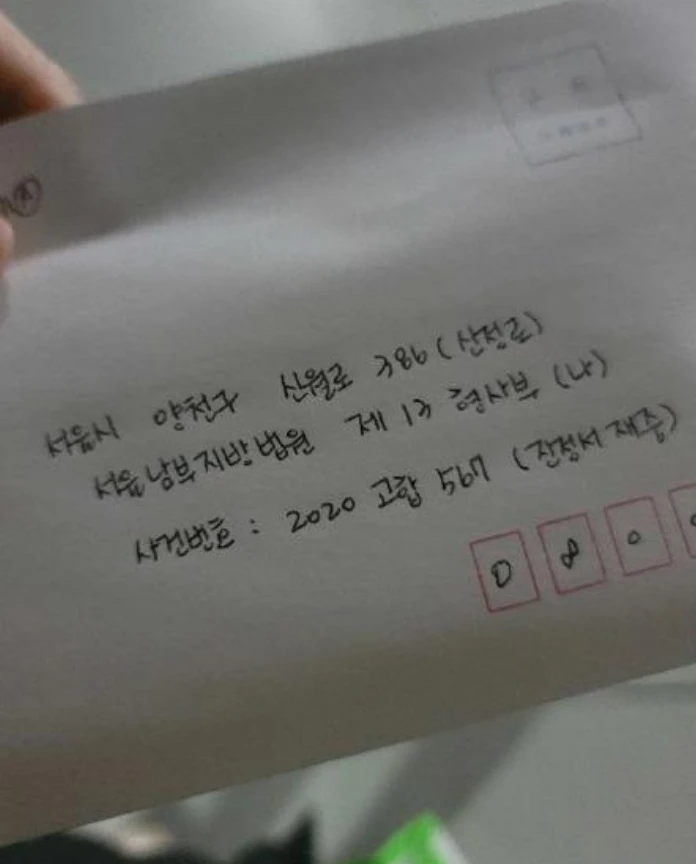 서울시 양천구 신월로 386 (신정로)
서울남부지방법원 제 13 형사부 (나)
사건번호 : 2020 고합 567 (진정서 재중)
0 8 0